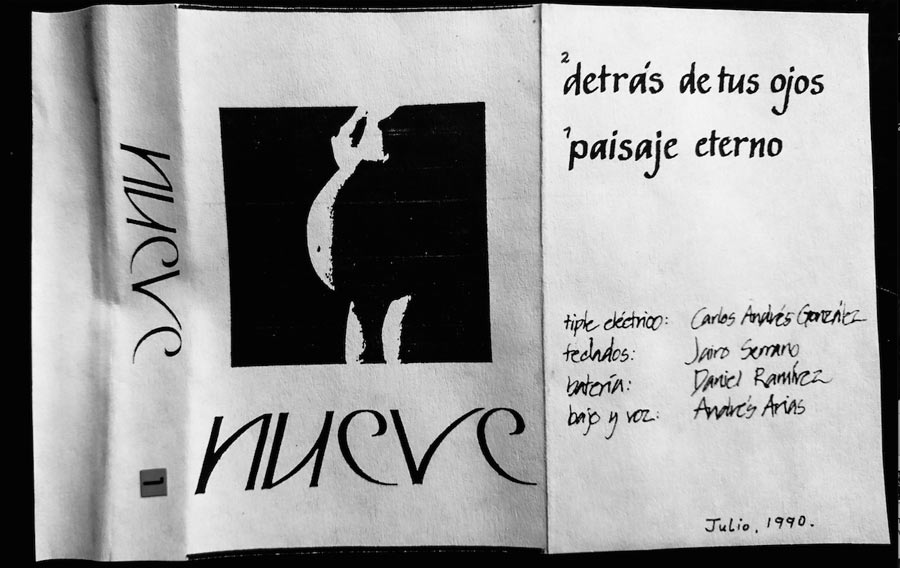 nueve
1
nueve
2 detrás de tus ojos
1 paisaje eterno
tiple eléctrico: Carlos Andrés González
teclados: Jairo Serrano
batería: Daniel Ramírez
bajo y voz: Andrés Arias
Julio, 1990.